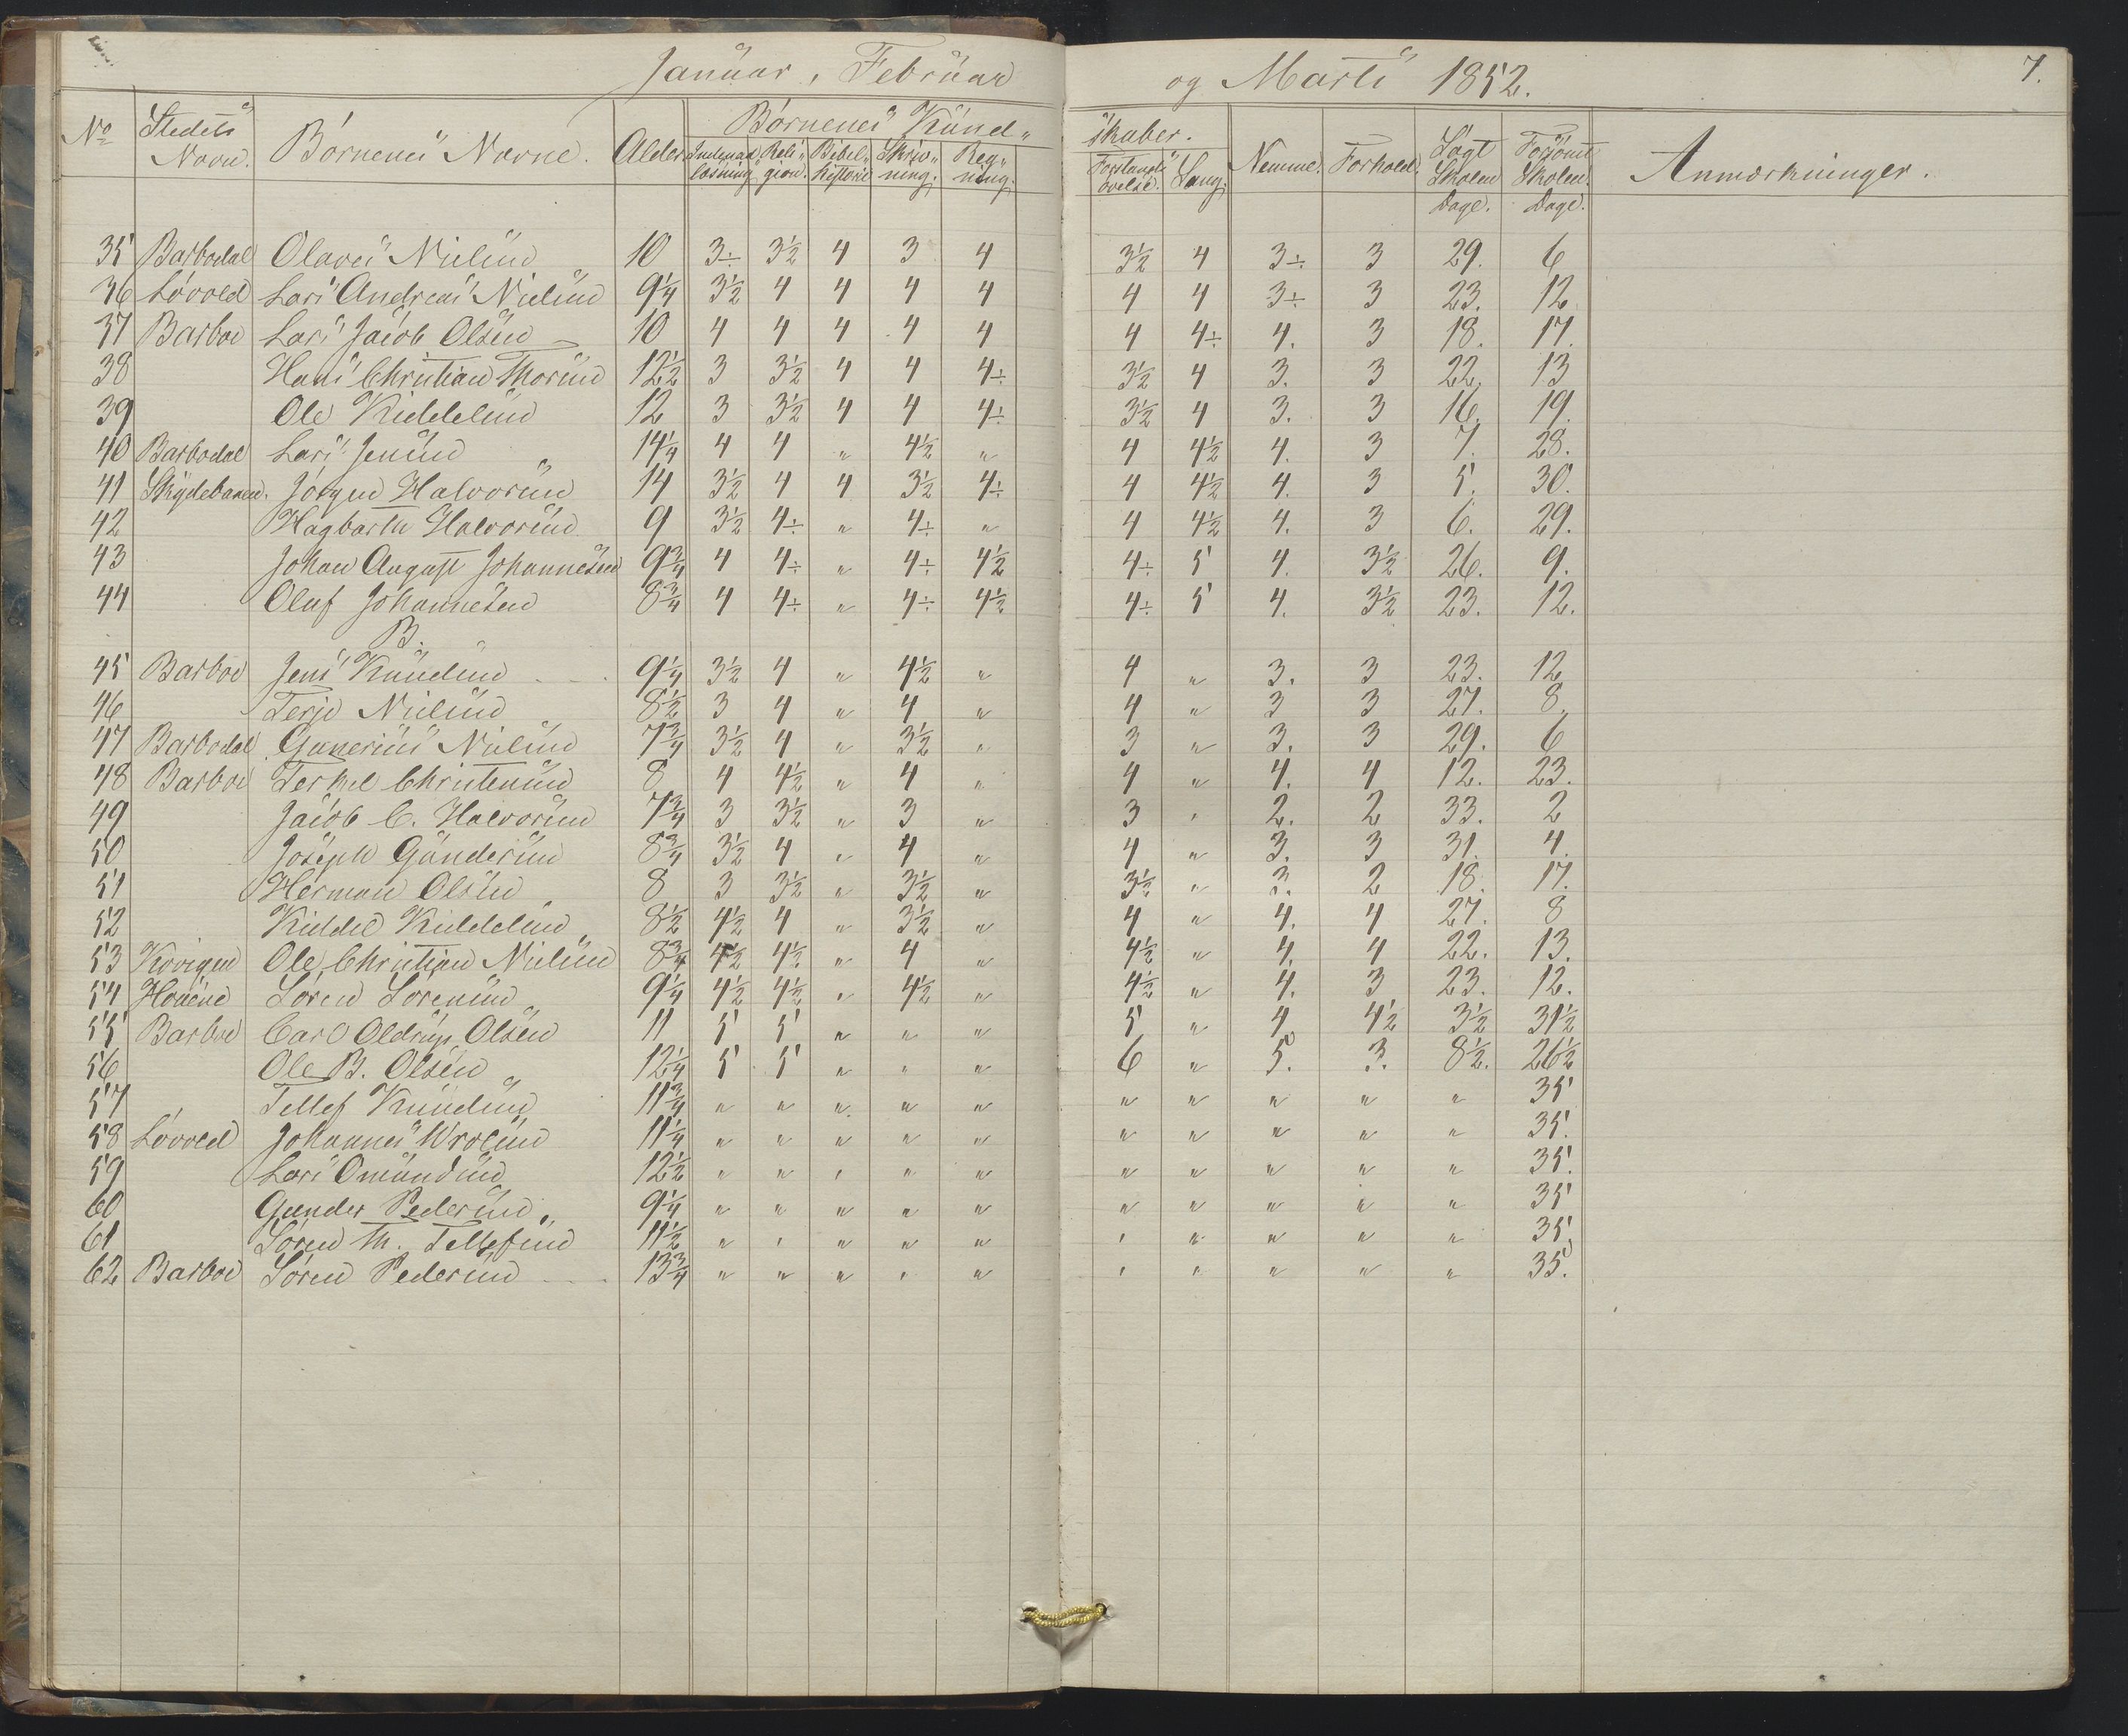 Januar, Februar og Marts 1852. 7.
No Stedets Navn. Børnenes Navne. Alder Børnenes Kund„ skaber. Nemme. Forhold. Søgt Skolen Dage. Forsömt Skolen Dage. Anmærkninger.
Indenad læsning Reli„ gion. Bibel„ historie Skriv„ ning. Reg„ ning. Forstands övelse. Sang.
35 Barbodal Olaves Nielsen 10 3÷ 3½ 4 3 4 3½ 4 3÷ 3 29. 6
36 Løvold Lars Andreas Nielsen 9¼ 3½ 4 4 4 4 4 4 3÷ 3 23. 12
37 Barboe Lars Jacob Olsen 10 4 4 4 4 4 4 4÷ 4. 3 18. 17.
38 Hans Christian Thorsen 12½ 3 3½ 4 4 4÷ 3½ 4 3. 3 22. 13
39 Ole Kiddelsen 12 3 3½ 4 4 4÷ 3½ 4 3. 3 16. 19.
40 Barbodal Lars Jensen 14¼ 4 4 „ 4½ „ 4 4½ 4. 3 7. 28.
41 Skydebanen. Jørgen Halvorsen 14 3½ 4 4 3½ 4÷ 4 4½ 4. 3 5. 30.
42 Hagbarth Halvorsen 9 3½ 4÷ „ 4÷ „ 4 4½ 4. 3 6. 29.
43 Johan August Johannesen 9¾ 4 4÷ „ 4÷ 4½ 4÷ 5 4. 3½ 26. 9.
44 Oluf Johannesen 8¾ 4 4÷ „ 4÷ 4½ 4÷ 5 4. 3½ 23. 12.
B.
45 Barboe Jens Knudsen 9¼ 3½ 4 „ 4½ „ 4 „ 3. 3 23. 12
46 Terje Nielsen 8½ 3 4 „ 4 „ 4 „ 3 3 27. 8.
47 Barbodal Gunerius Nielsen 7¾ 3½ 4 „ 3½ „ 3 „ 3. 3 29. 6
48 Barboe Terkel Christensen 8 4 4½ „ 4 „ 4 „ 4. 4 12. 23.
49 Jacob C. Halvorsen 7¾ 3 3½ „ 3 „ 3 „ 2. 2 33. 2
50 Joseph Gundersen 8¾ 3½ 4 „ 4 „ 4 „ 3. 3 31. 4.
51 Herman Olsen 8 3 3½ „ 3½ „ 3½ „ 3. 2 18. 17.
52 Kiddel Kiddelsen 8½ 4½ 4 „ 3½ „ 4 „ 4. 4 27. 8
53 Ole Christian Nielsen 8¾ 4½ 4½ „ 4 „ 4½ „ 4. 4 22. 13.
54 Søren Sørensen 9¼ 4½ 4½ „ 4½ „ 4½ „ 4. 3 23. 12.
55 Barboe Carl Oldrup Olsen 11 5 5 „ „ „ 5 „ 4 4½ 3½ 31½
56 Ole B. Olsen 12¼ 5 5 „ „ „ 6 „ 5. 3. 8½. 26½
57 Tellef Knudsen 11¾ „ „ „ „ „ „ „ „ „ „ 35
58 Løvold Johannes Wrolsen 11¼ „ „ „ „ „ „ „ „ „ „ 35.
59 Lars Omundsen 12½ „ „ „ „ „ „ „ „ „ „ 35.
60 Gunder Pedersen 9¼ „ „ „ „ „ „ „ „ „ „ 35
61 Søren Th. Tellefsen 11½ „ „ „ „ „ „ „ „ „ „ 35.
62 Barboe Søren Pedersen 13¾ „ „ „ „ „ „ „ „ „ „ 35.